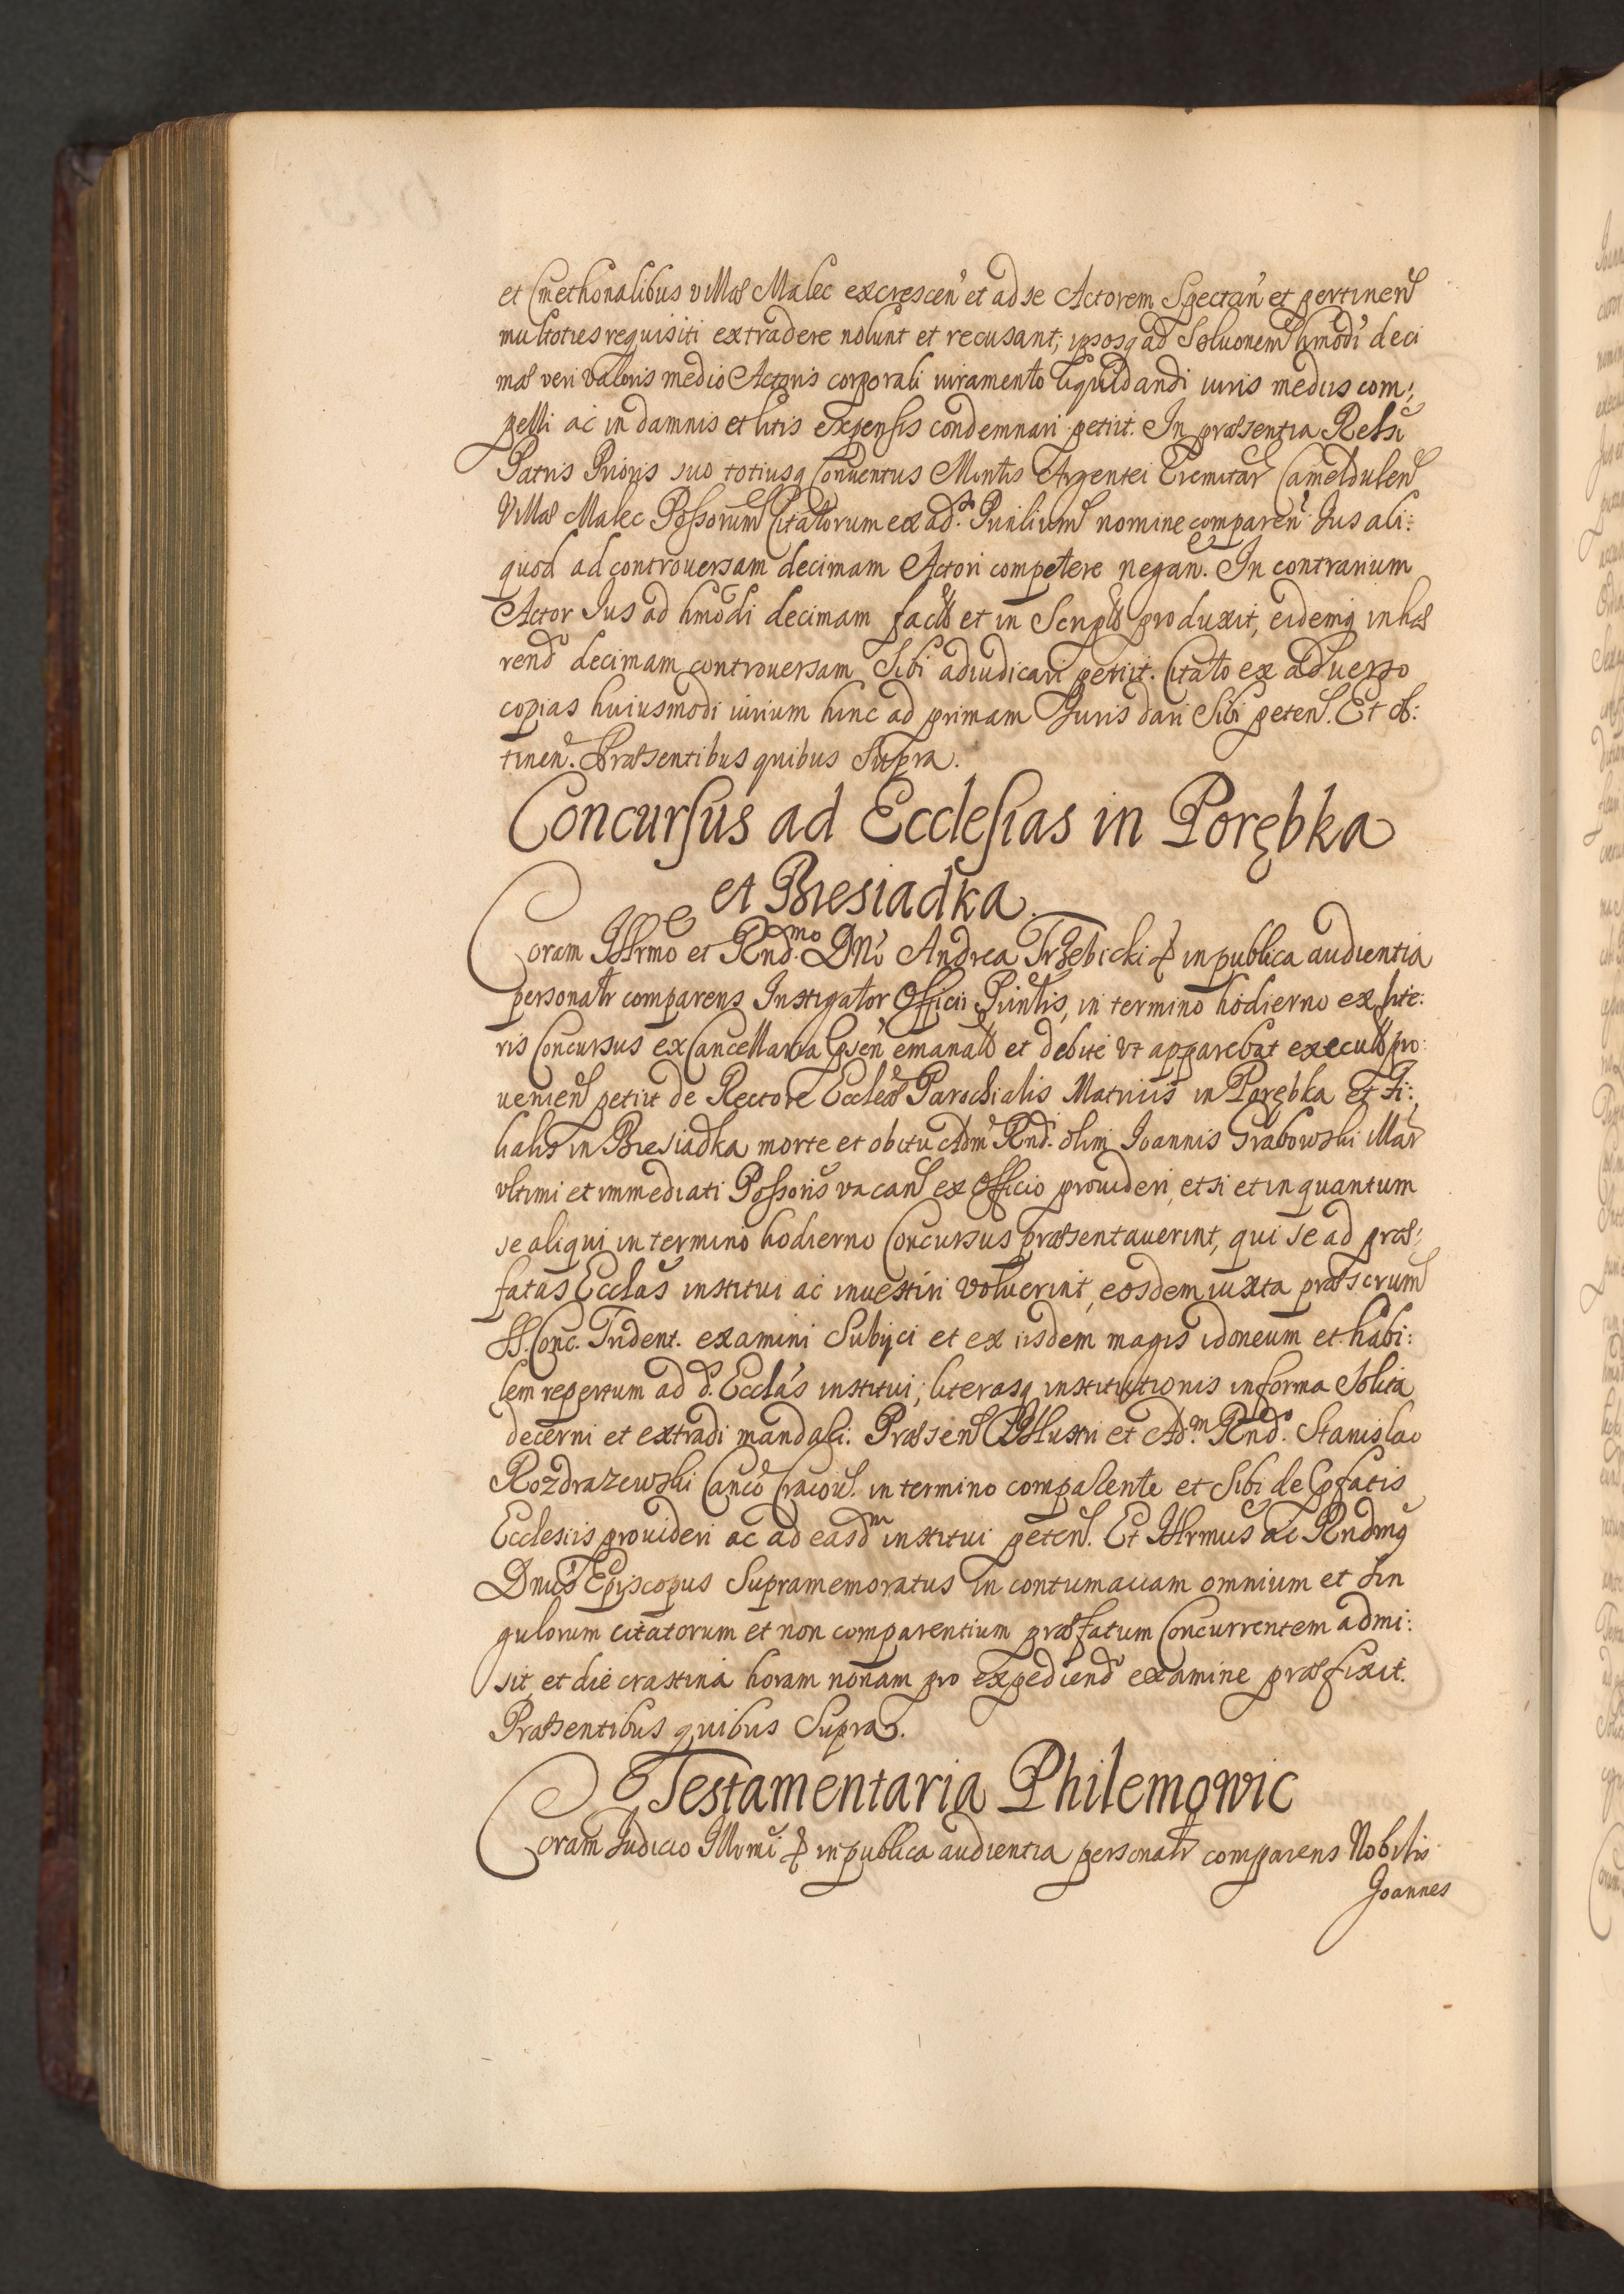 et Cmethonalibus villae Malec excrescen et ad se Actorem Spectan et pertinen
multoties requisiti extradere nolunt et recusant; ipsosq ad Soluonem hmodi deci
mae veri valoris medio Actoris corporali iuramento liquidandi iuris mediis com:
pelli ac in damnis et litis expensis condemnari petiit. In praesentia Relsi
Patris Prioris suo totiusq Conuentus Montis Argentei Eremitar Cameldulen
Villae Malec Possorum Citatorum ex ad. Punilium nomine comparen Jus ali:
quod ad controuersam decimam Actori competere negan. In contrarium
Actor Jus ad hmodi decimam factis et in Scriptis produxit, eidemq inhae
rend decimam controuersam Sibi adiudicari petiit. Citato ex aduerso
copias huiusmodi iurium hinc ad primam Juris dari Sibi peten. Et ob:
tinen. Praesentibus quibus Supra.
Concursus ad Ecclesias in Porębka
et Biesiadka.
Coram Illrmo et Rnd.mo Dni Andrea Trzebicki & in publica audientia
personalr comparens Instigator Officii Puintis, in termino hodierno ex lite:
ris Concursus ex Cancellaria Gsen emanatis et debite ut apparebat executis pro:
uenien petiit de Rectore Eccleae Parochialis Matricis in Porębka et Fi:
lialis in Biesiadka morte et obitu Adm Rnd. olim Joannis Grabowski illar
vltimi et immediati Possoris vacan ex Officio prouideri, et si et in quantum
se aliqui in termino hodierno Concursus praesentauerint, qui se ad prae:
fatas Ecclas institui ac inuestiri voluerint, eosdem iuxta praescrum
SS. Conc. Trident. examini Subijci et ex iisdem magis idoneum et habi:
lem repertum ad d. Ecclas institui; literasq institutionis in forma Solita
decerni et extradi mandali: Praesen Illustri et Ad.m Rnd.o Stanislao
Rozdrazewski Canco Cracou. in termino compalente et Sibi de Ppfatis
Ecclesiis prouideri ac ad easdm institui peten. Et Illrmus ac Rndmq
Dnus Episcopus Supramemoratus in contumaciam omnium et Sin
gulorum citatorum et non comparentium praefatum Concurrentem admi:
sit et die crastina horam nonam pro expediend examine praefixit.
Praesentibus quibus Supra.
Testamentaria Philemowic
Coram Judicio Illmi & in publica audientia personalr comparens Nobilis
Joannes